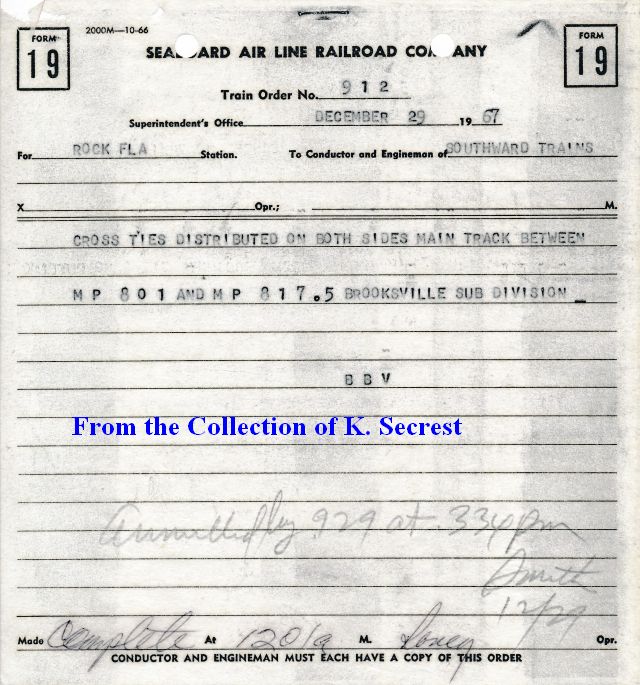 FORM 19
2000M—10-66
SEA ARD AIR LINE RAILROAD CO ANY
FORM 19
Train Order No. 912
Superintendent's Office DECEMBER 29 1967
For ROCK FLA Station. To Conductor and Engineman of SOUTHWARD TRAINS
X Opr.; M.
CROSS TIES DISTRIBUTED ON BOTH SIDES MAIN TRACK BETWEEN
MP 801 AND MP 817.5 BROOKSVILLE SUB DIVISION _
BBV
From the Collection of K. Secrest
Annulled by 929 at 334 pm
Smith
12/29
Made Complete At 1201a M. Opr.
CONDUCTOR AND ENGINEMAN MUST EACH HAVE A COPY OF THIS ORDER